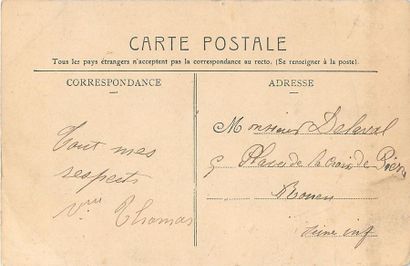 CARTE POSTALE
Tous les pays étrangers n'acceptent pas la correspondance au recto. (Se renseigner à la poste).
CORRESPONDANCE
ADRESSE
Tout mes
respects
Thomas
Monsieur Delaval
5 Place de la Croix de Pierre
Rouen
Seine inf